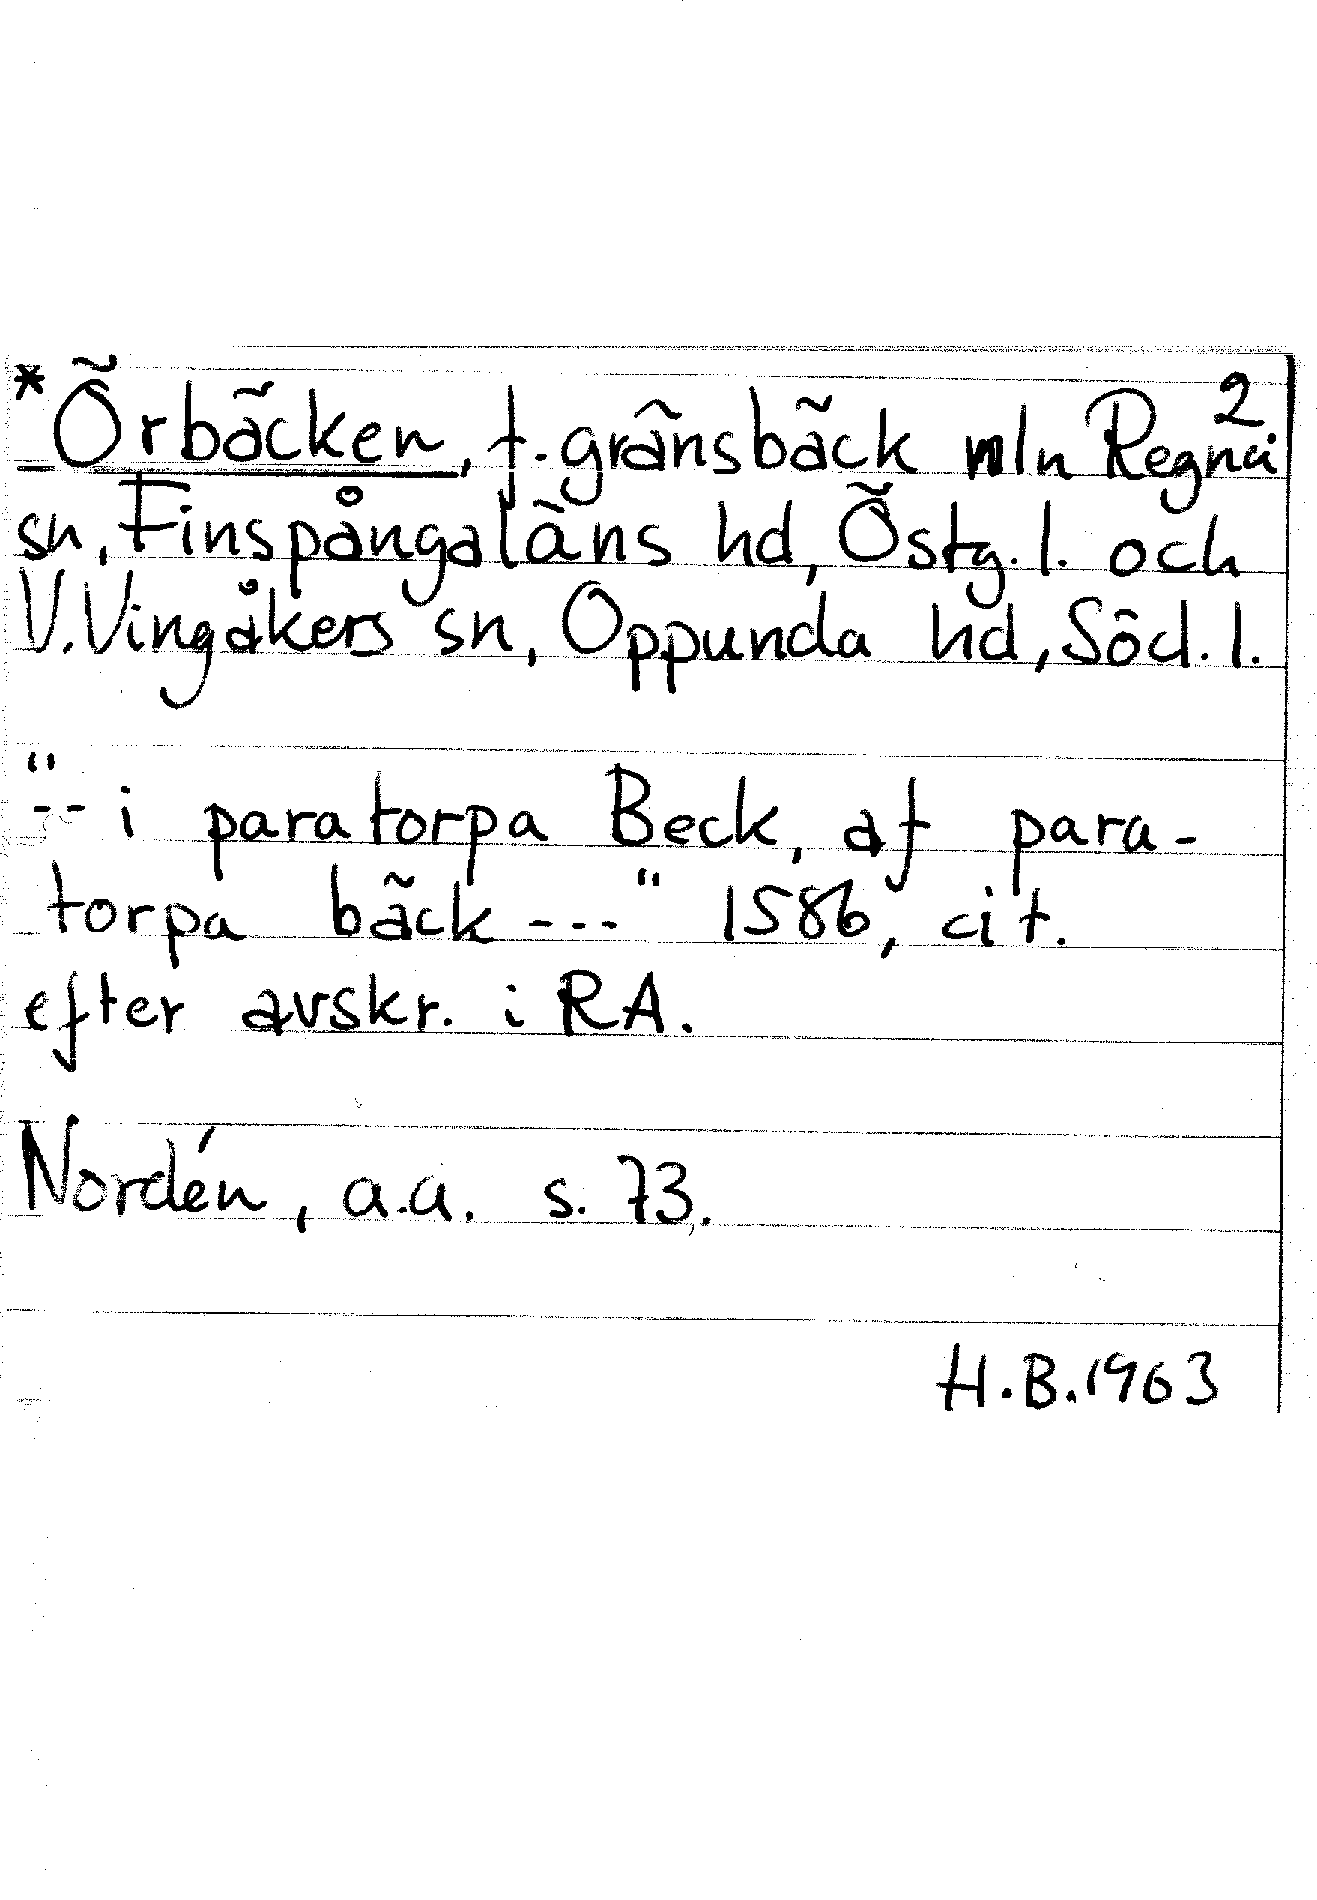 2
*Örbäcken, f. gränsbäck mln Regna
sn, Finspångaläns hd, Östg. l. och
V. Vingåkers sn, Oppunda hd, Söd. l.
"-- i paratorpa Beck, af para-
torpa bäck ---" 1586, cit.
efter avskr. i RA.
Nordén, a.a. s. 73.
H.B. 1963